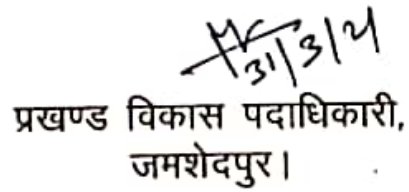 31/3/21
प्रखण्ड विकास पदाधिकारी,
जमशेदपुर।